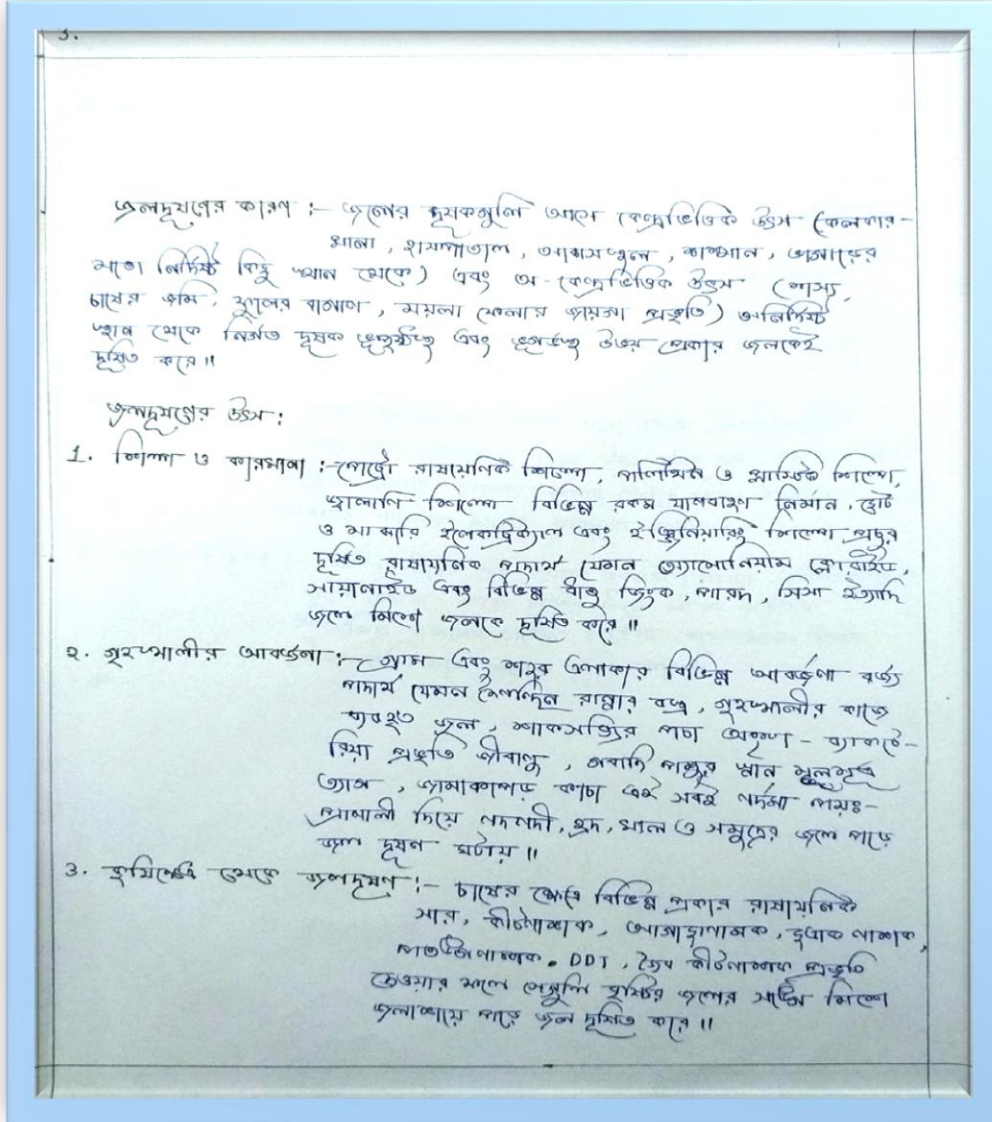 3.
জলদূষণের কারণ :- জলের দূষকগুলি আসে কেন্দ্রভিত্তিক উৎস (কলকার-
খানা, হাসপাতাল, আবাসস্থল, কাষ্মান, ভাগাড়ের
মতো নির্দিষ্ট কিছু স্থান থেকে) এবং অ-কেন্দ্রভিত্তিক উৎস (শস্য,
চাষের জমি, ফুলের বাগান, ময়লা ফেলার জায়গা প্রভৃতি) অনির্দিষ্ট
স্থান থেকে নির্গত দূষক ভূপৃষ্ঠস্থ এবং ভূগর্ভস্থ উভয় প্রকার জলকেই
দূষিত করে॥
জলদূষণের উৎস :
1. শিল্প ও কারখানা :- পেট্রো রাষায়নিক শিল্পে, পলিথিন ও প্লাস্টিক শিল্পে,
জ্বালানি শিল্পে বিভিন্ন রকম যানবাহণ নির্মান, ছোট
ও মাঝারি ইলেকট্রিক্যাল এবং ইঞ্জিনিয়ারিং শিল্পে প্রচুর
দূষিত রাষায়নিক পদার্থ যেমন অ্যামোনিয়াম ক্লোরাইড,
সায়ানাইড এবং বিভিন্ন ধাতু জিংক, পারদ, সিসা ইত্যাদি
জলে মিশে জলকে দূষিত করে॥
২. গৃহস্থালীর আবর্জনা :- গ্রাম এবং শহর এলাকার বিভিন্ন আবর্জনা বর্জ্য
পদার্থ যেমন দৈনন্দিন রান্নার বস্তু, গৃহস্থালীর কাজে
ব্যবহৃত জল, শাকসব্জির পচা অংশ - ব্যাকটে-
রিয়া প্রভৃতি জীবাণু, গবাদি পশুর স্নান মুলমূত্র
ত্যাগ, জামাকাপড় কাচা এই সবই নর্দমা পয়ঃ-
প্রনালী দিয়ে নদনদী, হ্রদ, খাল ও সমুদ্রের জলে পড়ে
জল দূষণ ঘটায়॥
3. কৃষিক্ষেত্র থেকে জলদূষণ :- চাষের ক্ষেত্রে বিভিন্ন প্রকার রাষায়নিক
সার, কীটনাশক, আগাছানাশক, ছত্রাক নাশক,
পতঙ্গনাশক. DDT, জৈব কীটনাশক প্রভৃতি
দেওয়ার ফলে সেগুলি বৃষ্টির জলের সঙ্গে মিশে
জলাশয়ে পড়ে জল দূষিত করে॥